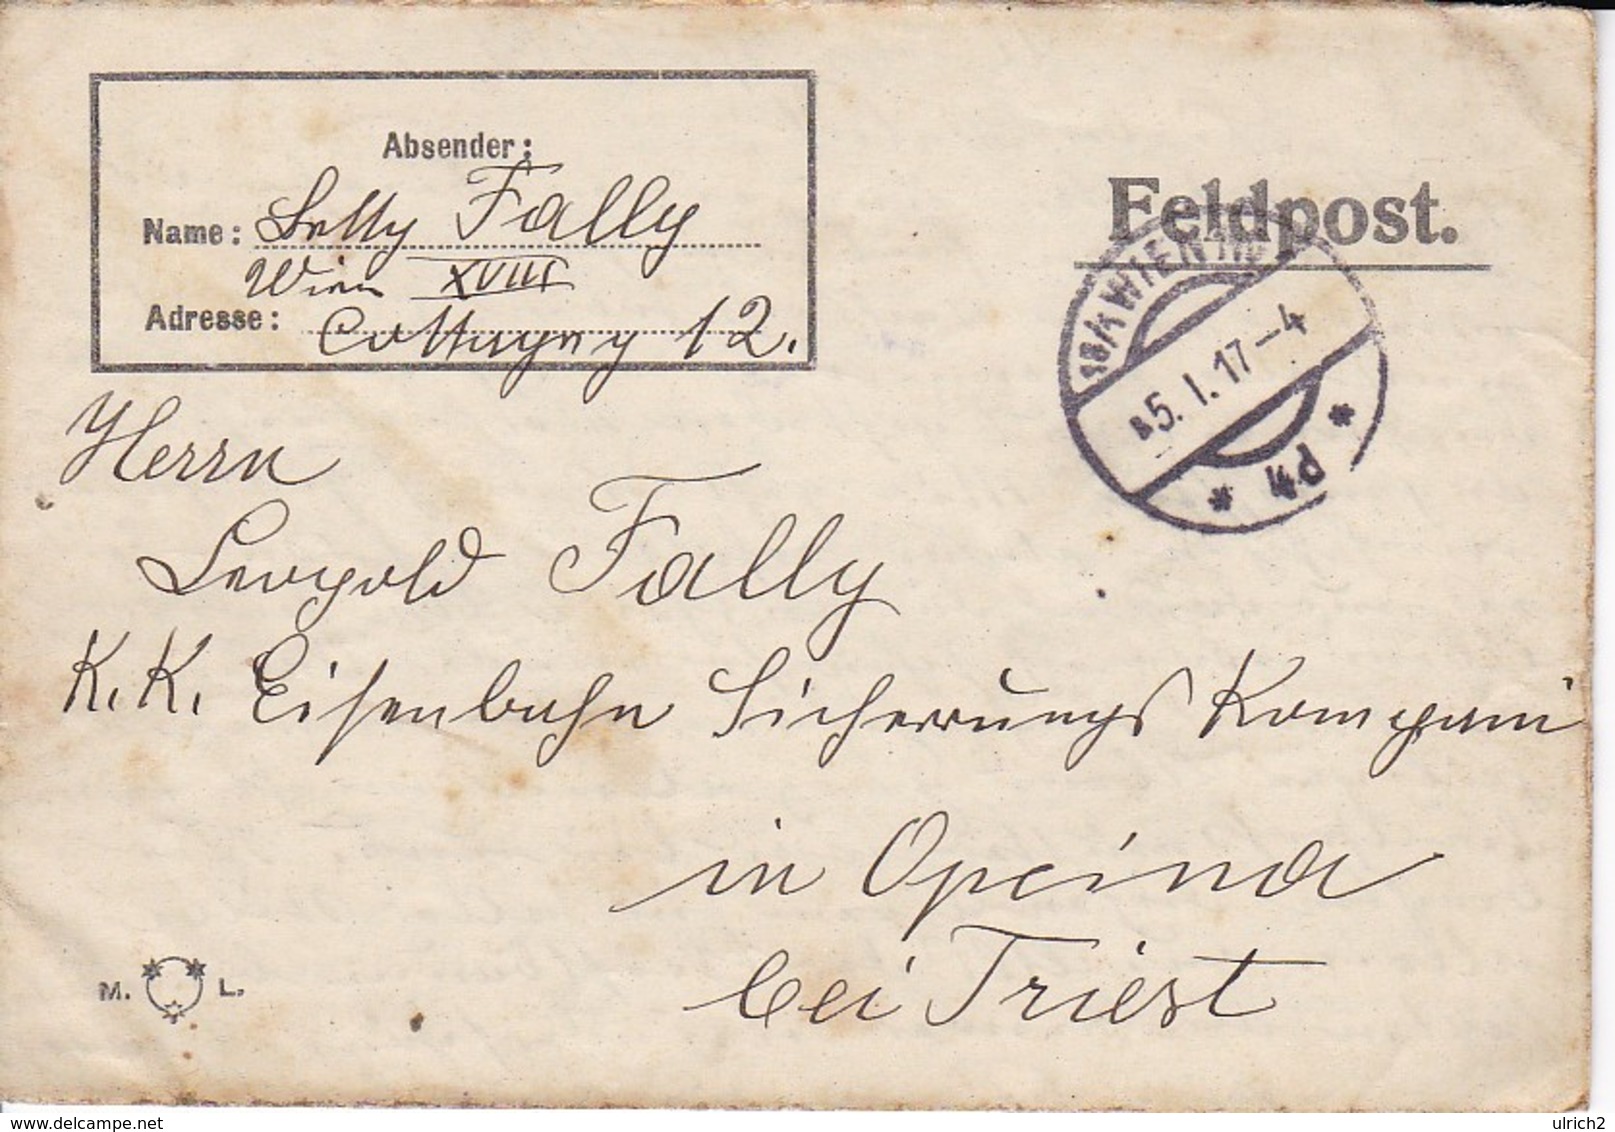 Absender:
Name: Betty Fally
Wien XVIII
Adresse: Cottagegasse 12.
Feldpost.
18/1 WIEN 110
5.I.17-4
4d
Herrn
Leopold Fally
K.K. Eisenbahn Sicherungs Kompani
in Opcina
bei Triest
M. L.
delcampe.net
ulrich2